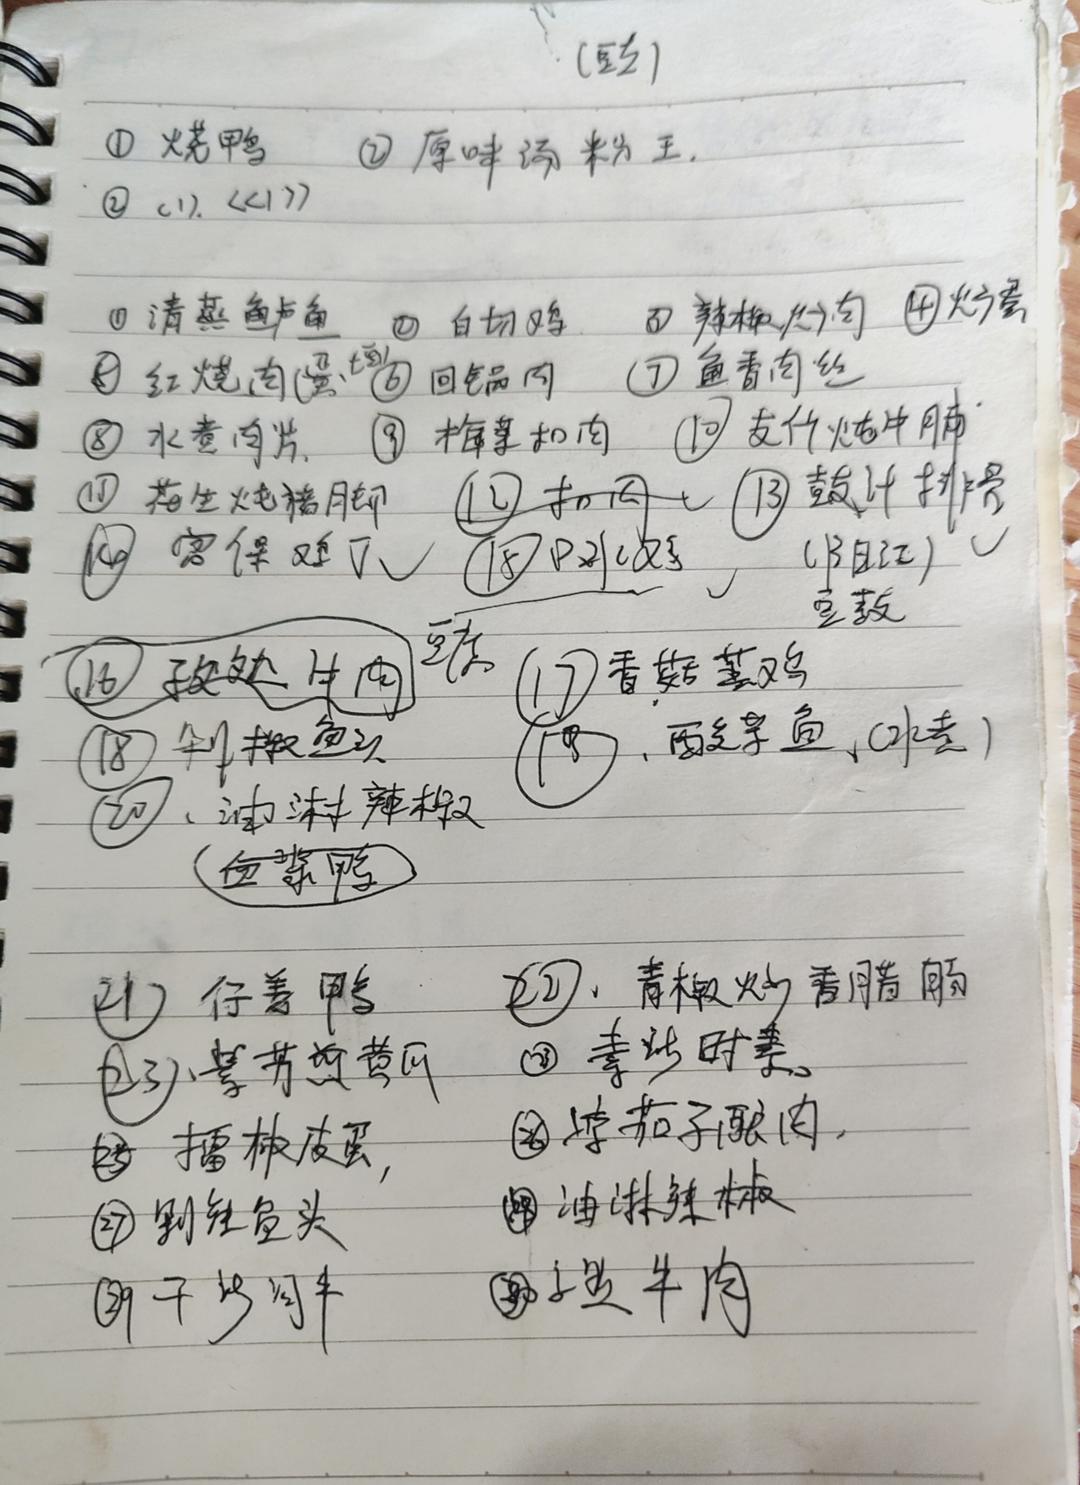 ① 烧鸭 ② 原味汤粉王.
② <1>. <<1>>
① 清蒸鲈鱼 ② 白切鸡 ③ 辣椒炒肉 ④ 炒蛋
⑤ 红烧肉(蛋、 ⑥ 回锅肉 ⑦ 鱼香肉丝
⑧ 水煮肉片. ⑨ 梅菜扣肉 ⑩ 支竹炖牛腩
⑪ 花生炖猪脚 ⑫ 扣肉 ⑬ 鼓汁排骨
⑭ 宫保鸡丁 ⑮ 口水鸡
豆鼓
⑯ 牛肉 ⑰ 香菇蒸鸡
⑱ 剁椒鱼头 ⑲、酸菜鱼、(水煮)
⑳、油淋辣椒
血浆鸭
㉑ 仔姜鸭 ㉒、青椒炒香腊肠
㉓、紫苏煎黄瓜 素炒时素。
㉕ 擂椒皮蛋, ㉖ 茄子酿肉.
㉗ 剁鱼头 油淋辣椒
㉙ 干炒 牛肉